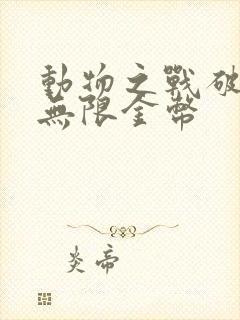 動物之戰破
無限金幣
炎帝